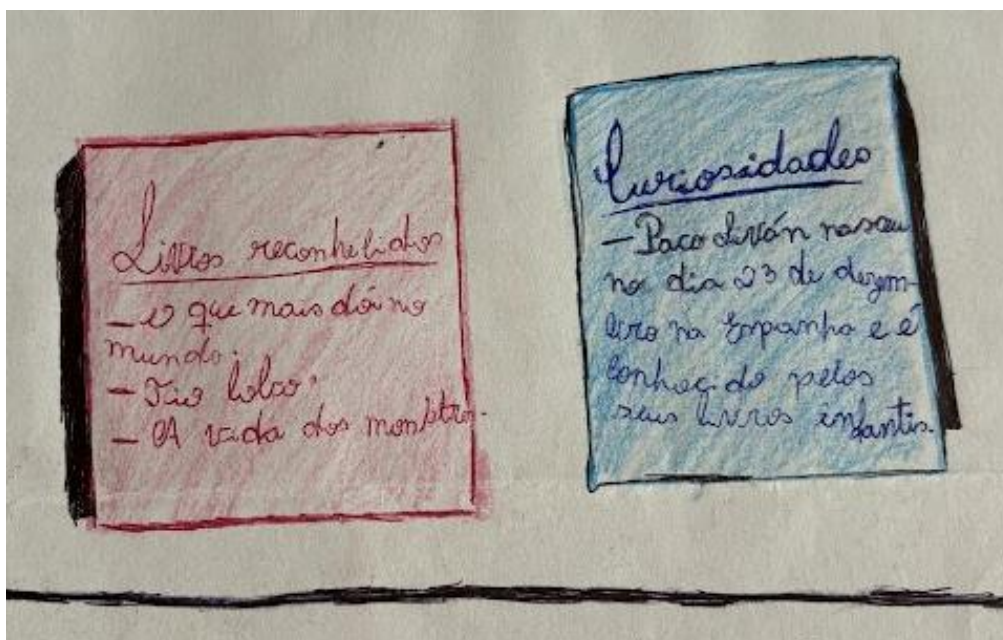 Livros reconhecidos
- O que mais dói no
mundo;
- Tio lobo;
- A vida dos monstros.
Curiosidades
- Paco Liván nasceu
no dia 23 de dezem-
bro na Espanha e é
conhecido pelos
seus livros infantis.